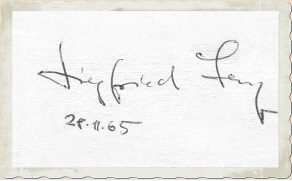 Siegfried Lenz
28.11.65